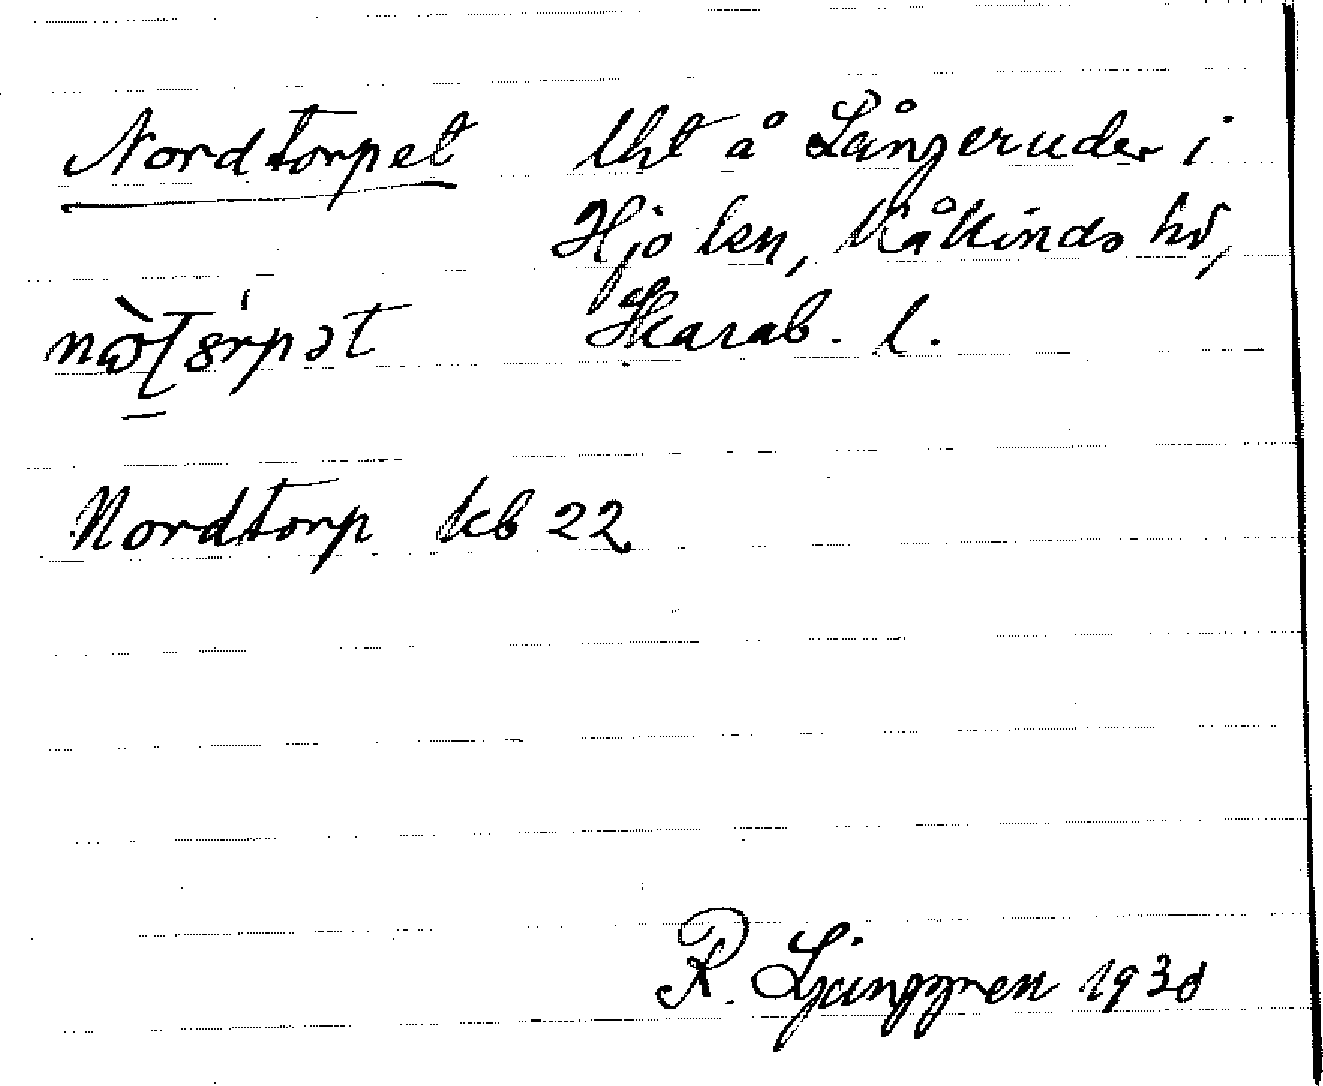 Nordtorpet lht å Långeruder i
Hjo lsn, Kåkinds hd,
Skarab. l.
Nordtorp kb 22
R. Ljunggren 1930